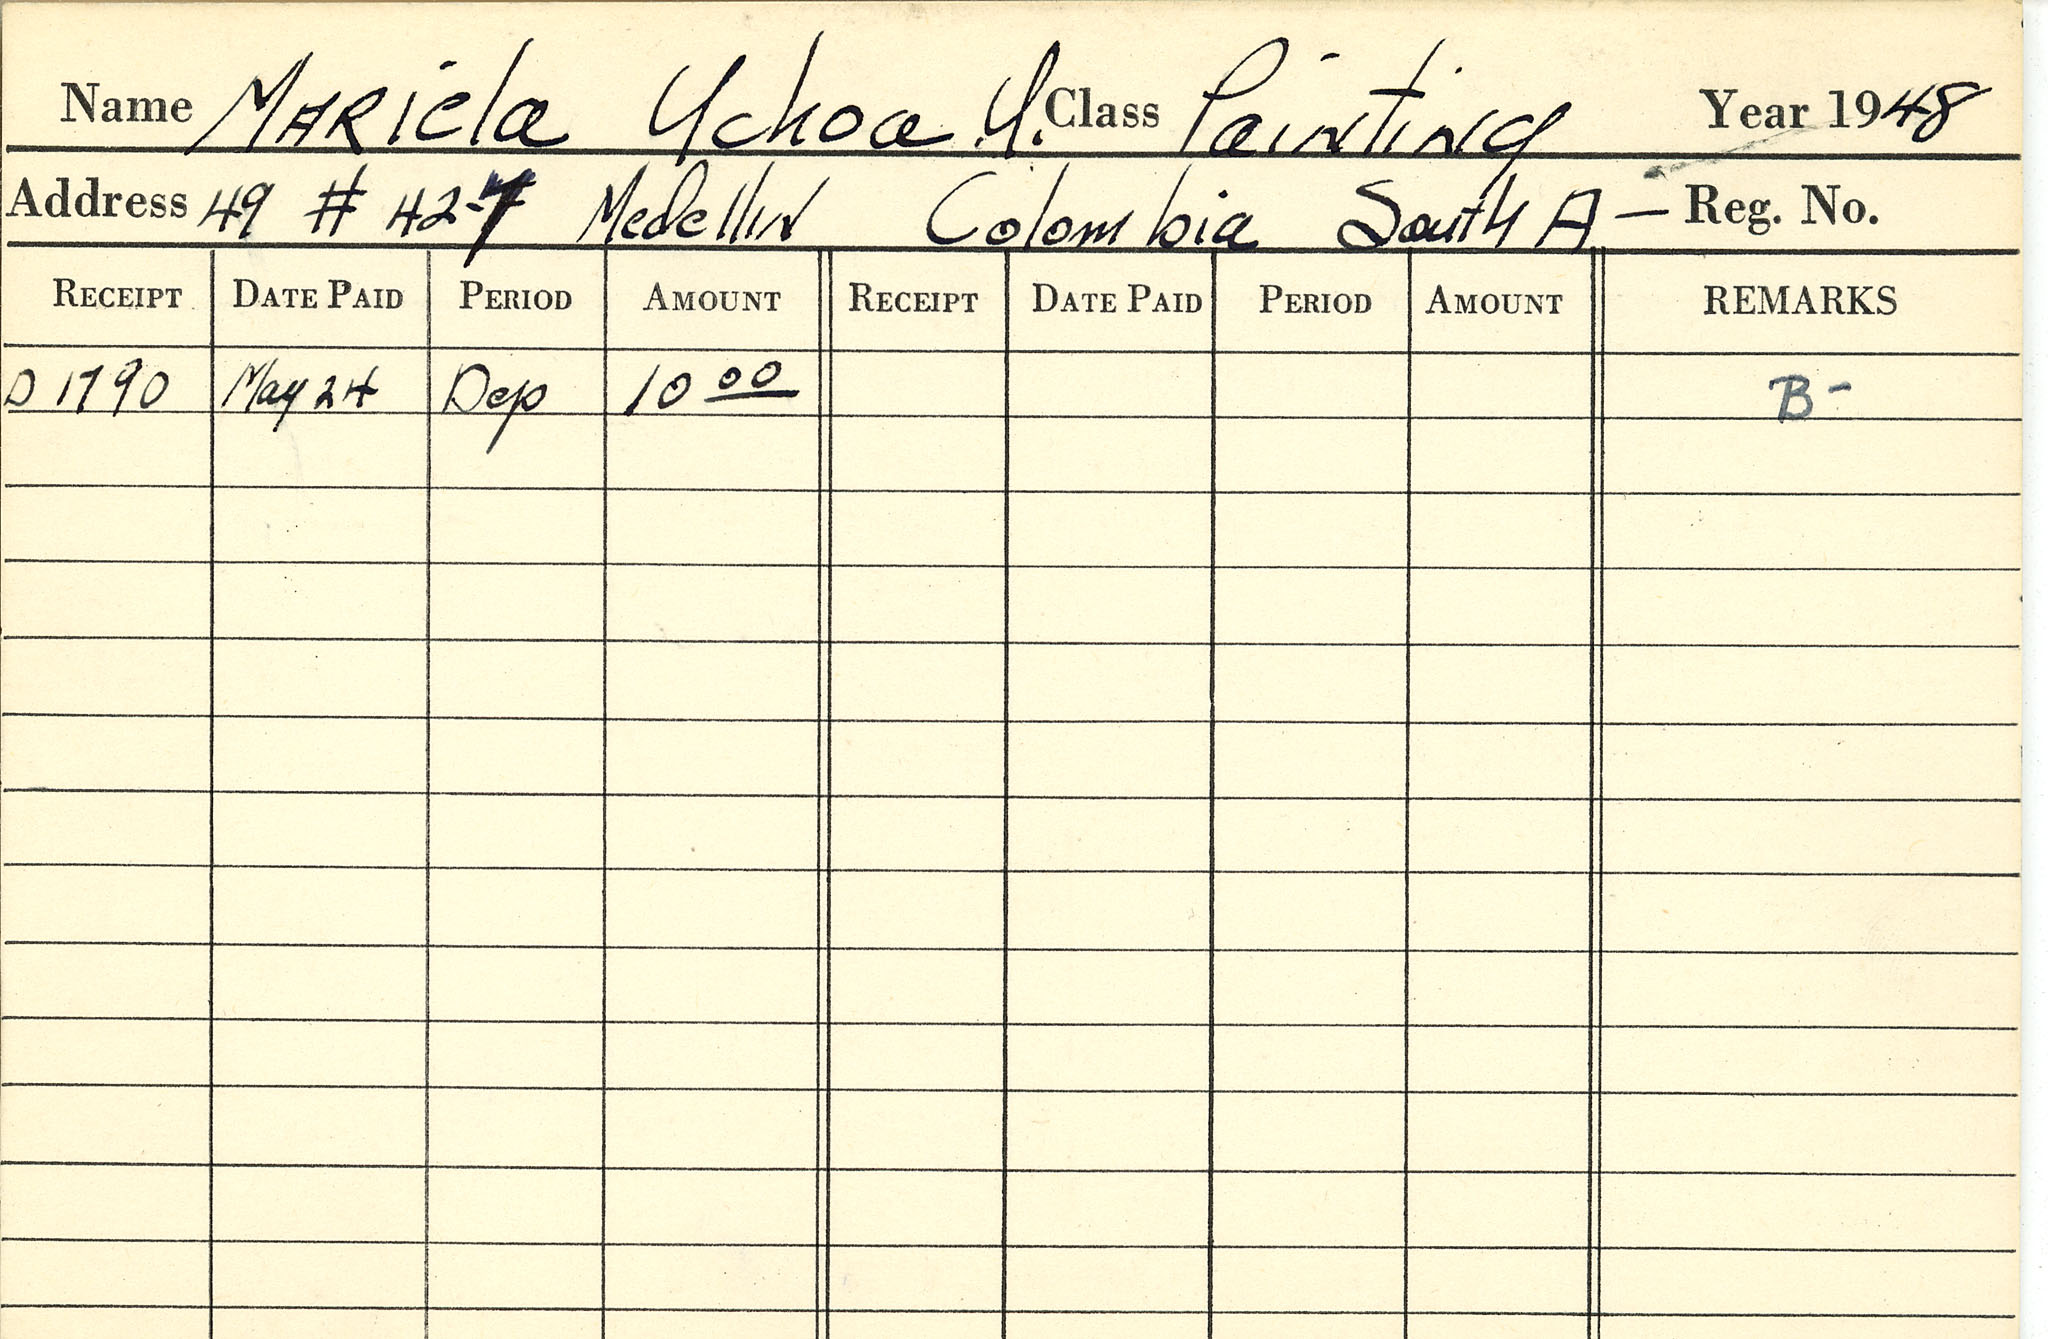 Name Mariela Ychoa Y. Class Painting Year 1948
Address 49 # 42-7 Medellin Colombia South A — Reg. No.
RECEIPT DATE PAID PERIOD AMOUNT RECEIPT DATE PAID PERIOD AMOUNT REMARKS
D 1790 May 24 Dep 10 00 B-